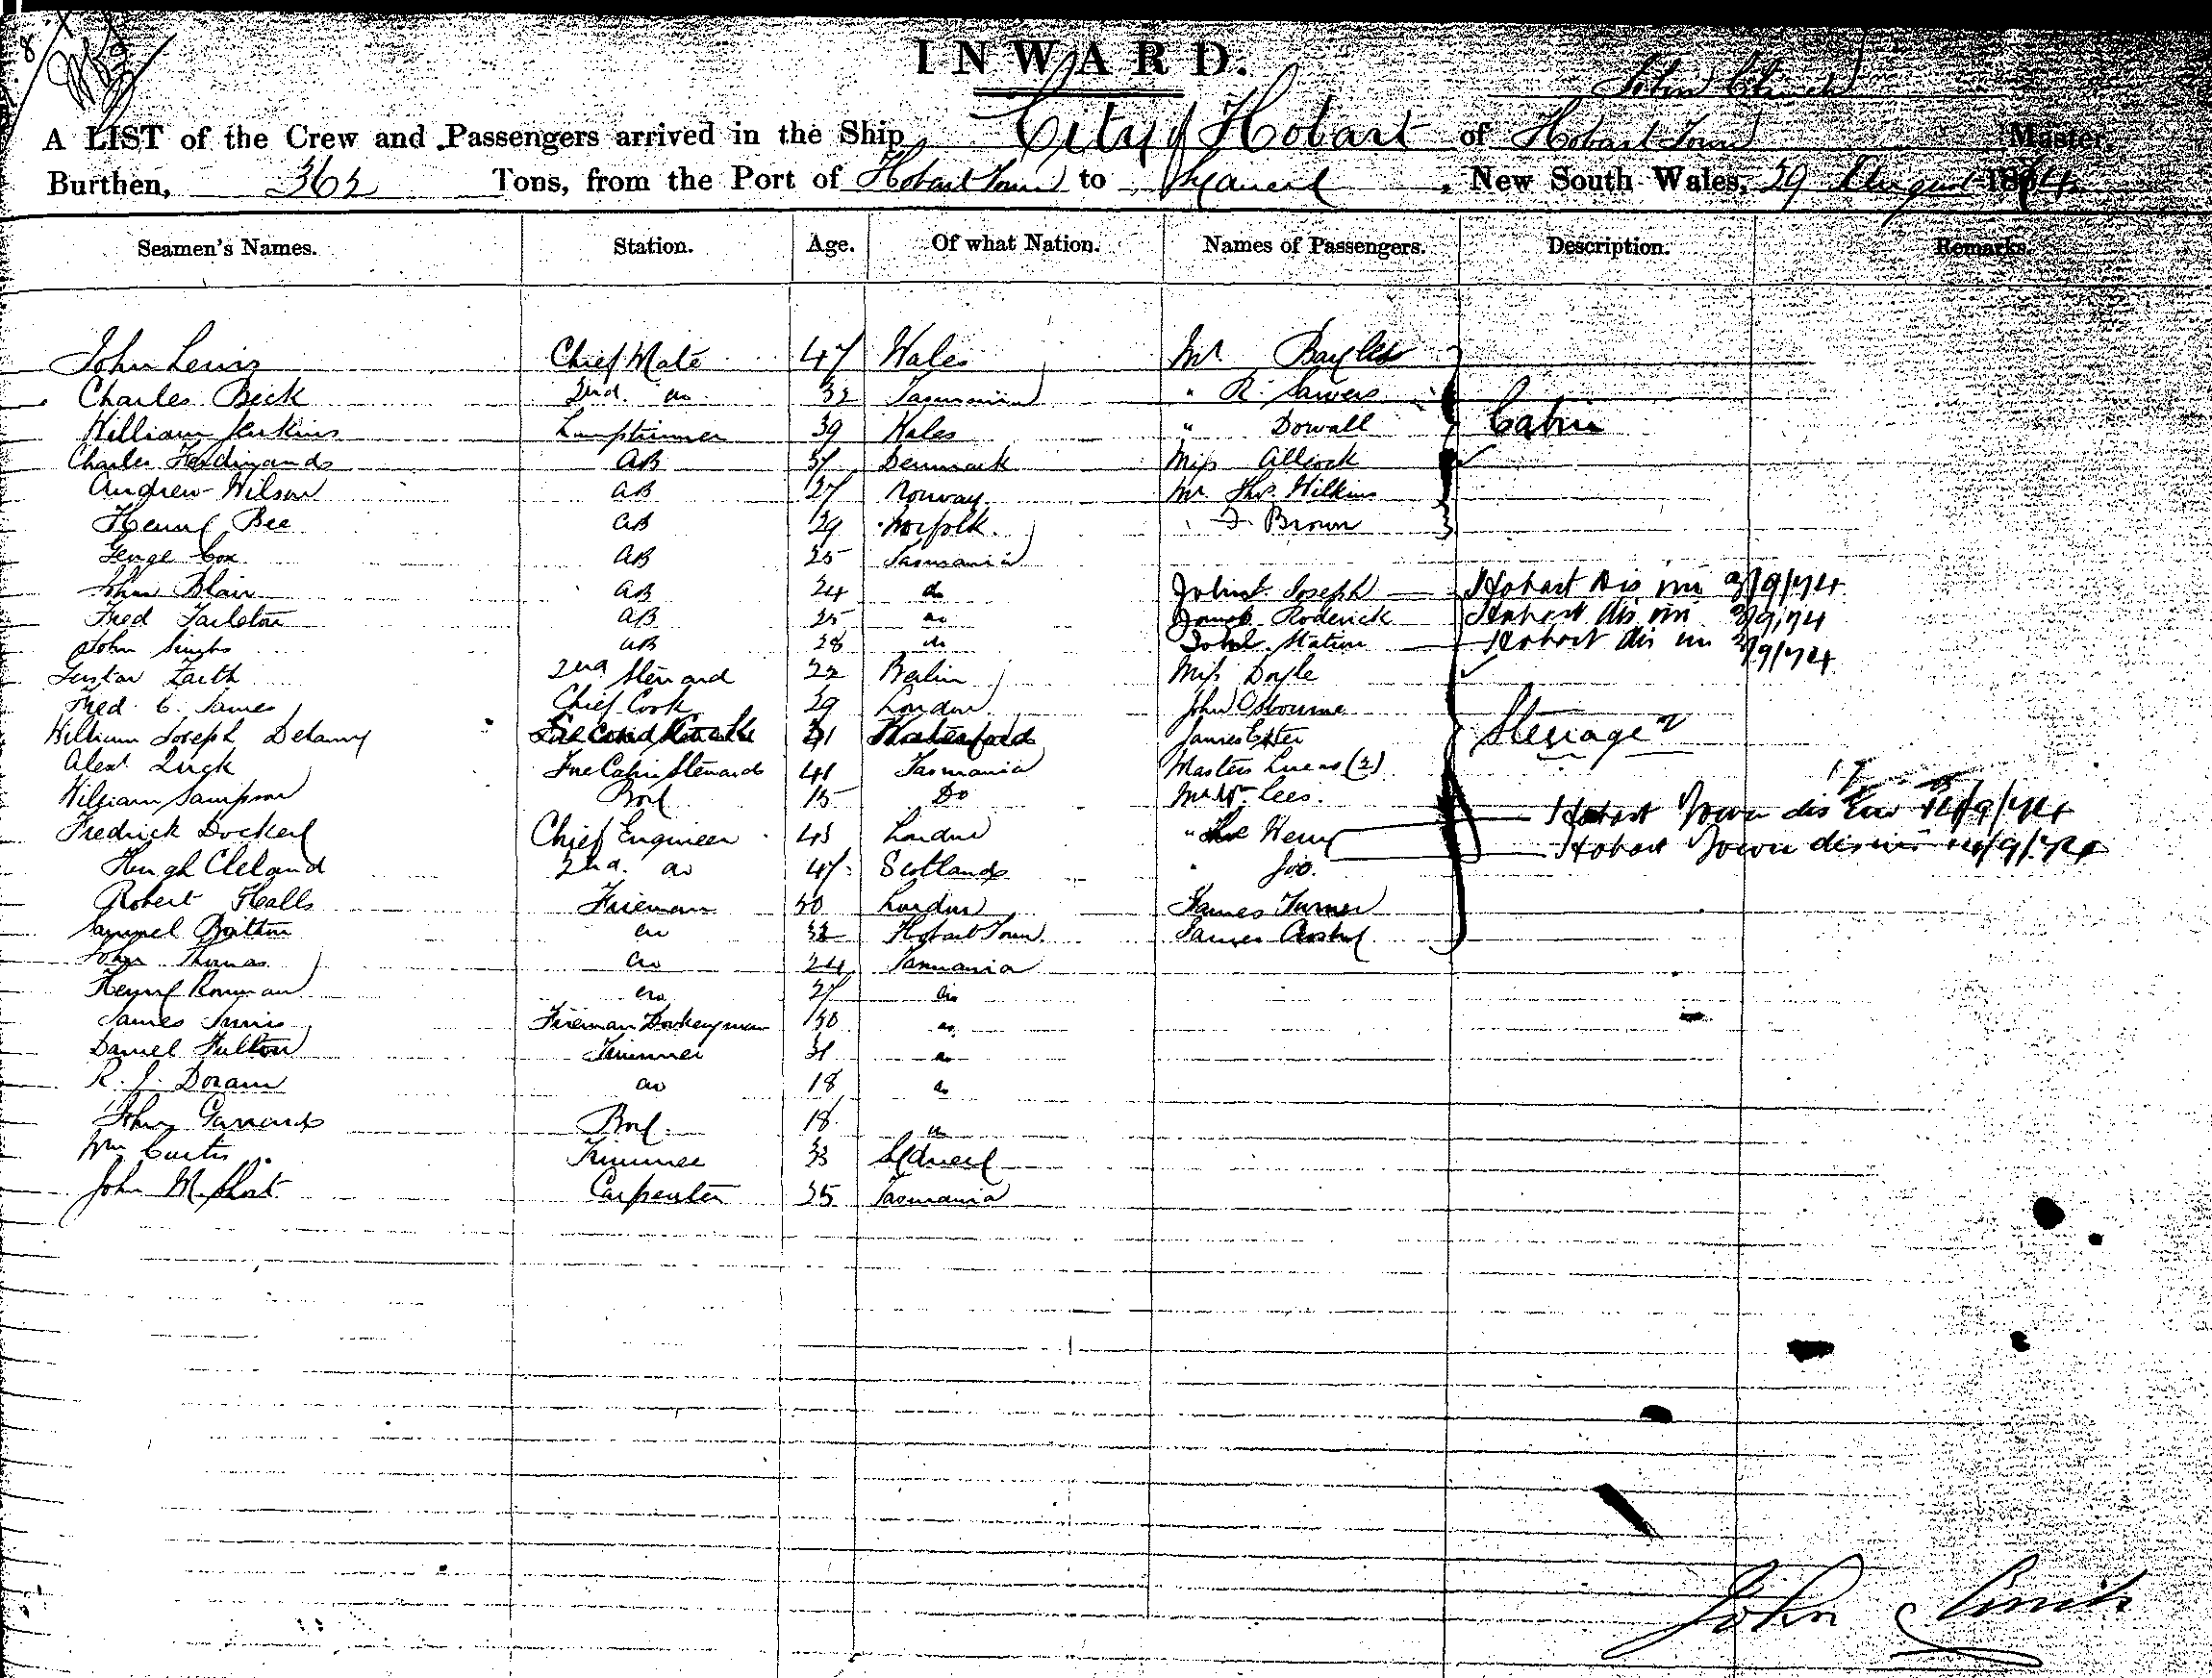 INWARD.
John Clinch
A LIST of the Crew and Passengers arrived in the Ship City of Hobart of Hobart Town Master,
Burthen, 363 Tons, from the Port of Hobart Town to Sydney, New South Wales, 29 August 1874
Seamen's Names. Station. Age. Of what Nation. Names of Passengers. Description. Remarks.
John Lewis Chief Mate 47 Wales Mr Bayles
Charles Beck 2nd do 32 Tasmania " R. Sawers
William Jenkins Lamptrimmer 39 Wales " Dowall Cabin
Charles Ferdinands AB 31 Denmark Miss Allcock
Andrew Wilson AB 27 Norway Mr Thos Wilkins
Henry Bee AB 29 Norfolk F. Brown
George Cox AB 25 Tasmania
John Blair AB 24 do Joseph Hobart dis 3/9/74
Fred Tarleton AB 25 do Roderick Hobart dis 3/9/74
John Sings AB 28 do Station Hobart dis 3/9/74
Gustav Zaith 2nd Steward 22 Berlin Miss Doyle
Fred. C. James Chief Cook 29 London John Osbourne
William Joseph Delany Second Cook 21 Waterford James Steerage
Alext Luck Fore Cabin Steward 41 Tasmania Masters Lucas (2)
William Sampson Boy 15 Do Mr Wm Lees.
Fredrick Dockery Chief Engineer 43 London " Hobart Town dis 14/9/74
Hugh Cleland 2nd do 47 Scotland Joo. Hobart Town dis 14/9/74
Robert Halls Fireman 50 London James Turner
Samuel Britton do 32 Hobart Town James
John Thomas do 24 Tasmania
Henry Rowman do 27 do
James Innis Fireman Donkeyman 30 do
Daniel Fulton Trimmer 31 do
R. J. Doran do 18 do
John Garrard Boy 18 do
Wm Curtis Trimmer 33 Sydney
John M. Short Carpenter 35 Tasmania
John Clinch